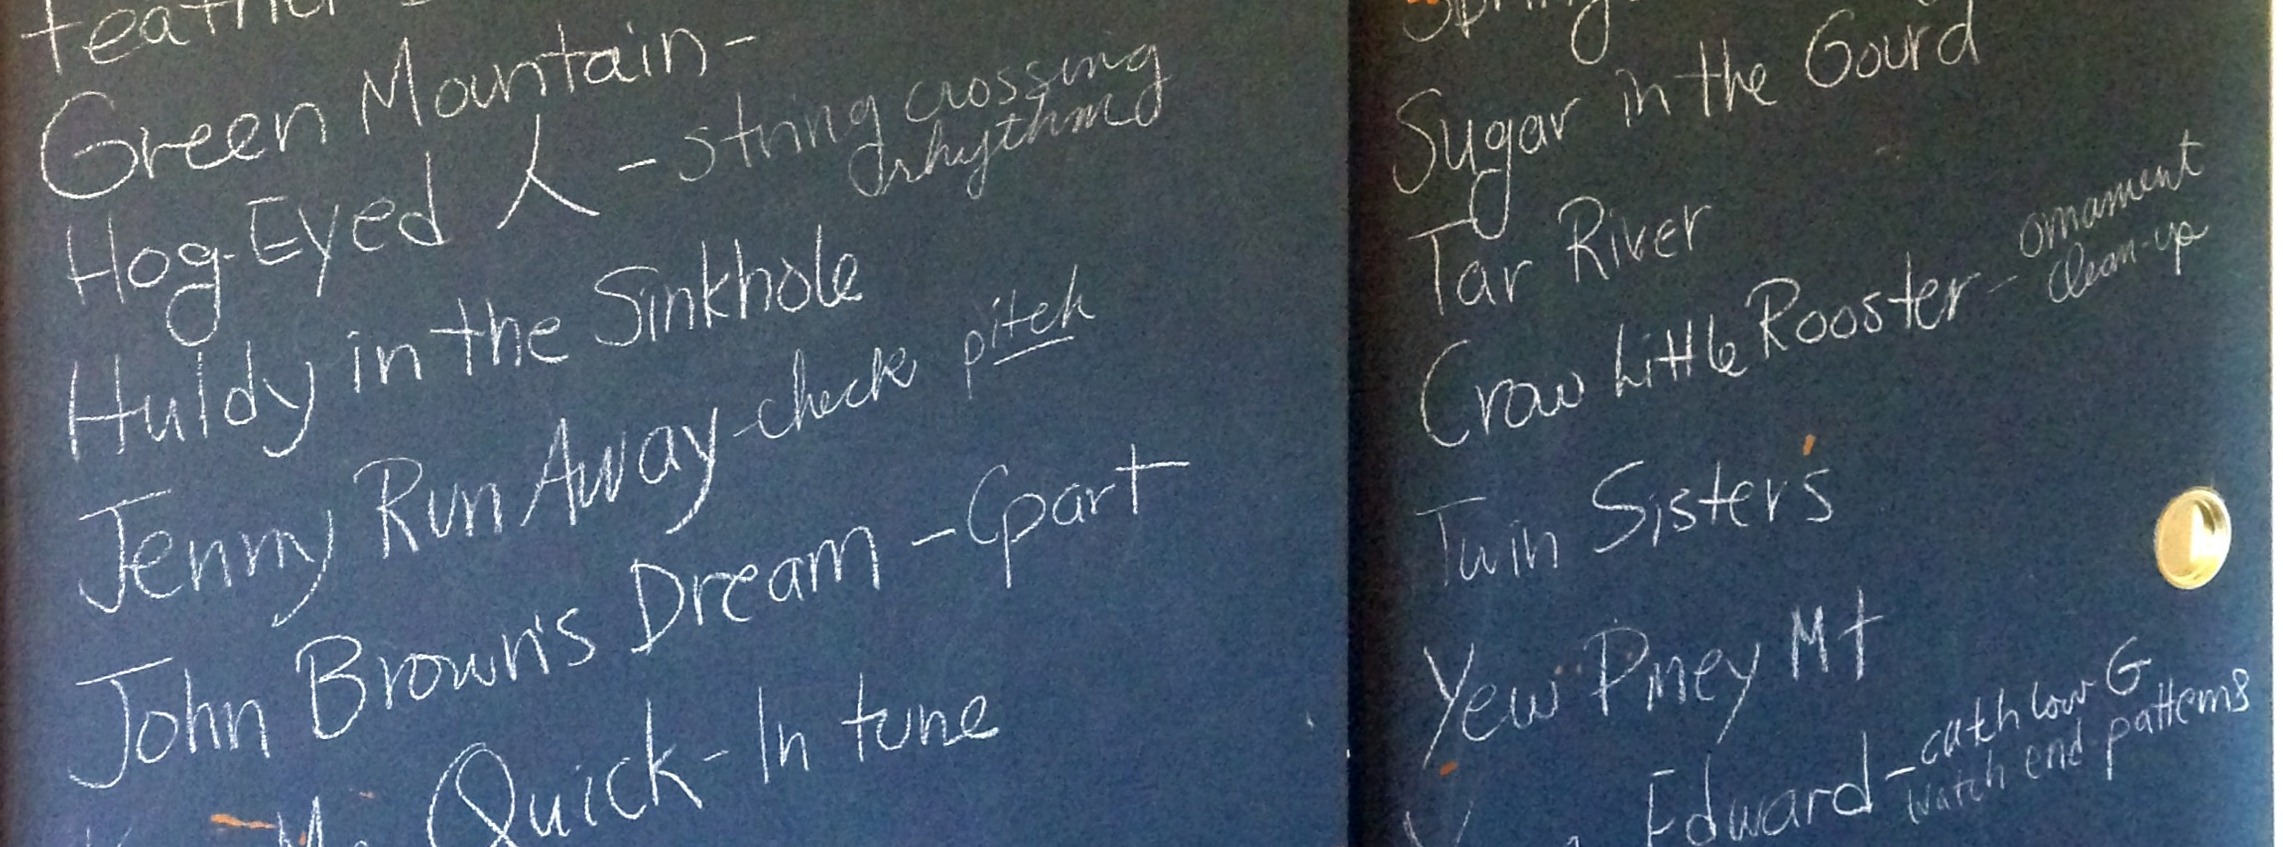 Green Mountain -
Hog-Eyed 人 - string crossing
rhythm
Huldy in the Sinkhole
Jenny Run Away - check pitch
John Brown's Dream - C part
Me Quick - In tune
Sugar in the Gourd
Tar River
Crow Little Rooster - ornament
clean-up
Twin Sister's
Yew Piney Mt
Edward - catch low G
watch end patterns